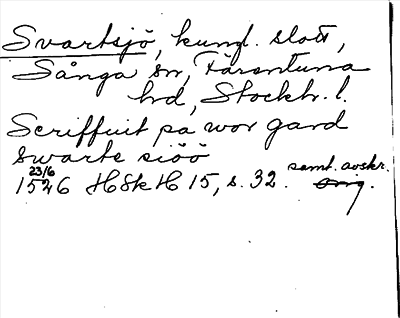 Svartsjö, kungl. slott,
Sånga sn, Färentuna
hd, Stockh. l.
Scriffuit på wor gard
swarte siöö
23/6 samt. avskr.
1526 HSkH 15, s. 32. orig.